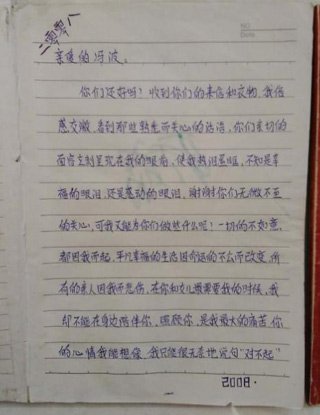 二零零八
NO.
Date
亲爱的冯波。
你们还好吗？收到你们的来信和衣物，我倍
感欣慰，看到那些熟悉而关心的话语，你们亲切的
面容立刻呈现在我的眼前，使我热泪盈眶，不知是幸
福的眼泪，还是感动的眼泪，谢谢你们无微不至
的关心，可我又能为你们做些什么呢！一切的不如意，
都因我而起，平凡幸福的生活因命运的不公而改变，所
有的亲人因我而悲伤，在你和女儿最需要我的时候，我
却不能在身边陪伴你，照顾你，是我最大的痛苦，你
的心情我能想像，我只能很无奈地说句“对不起”
2008.